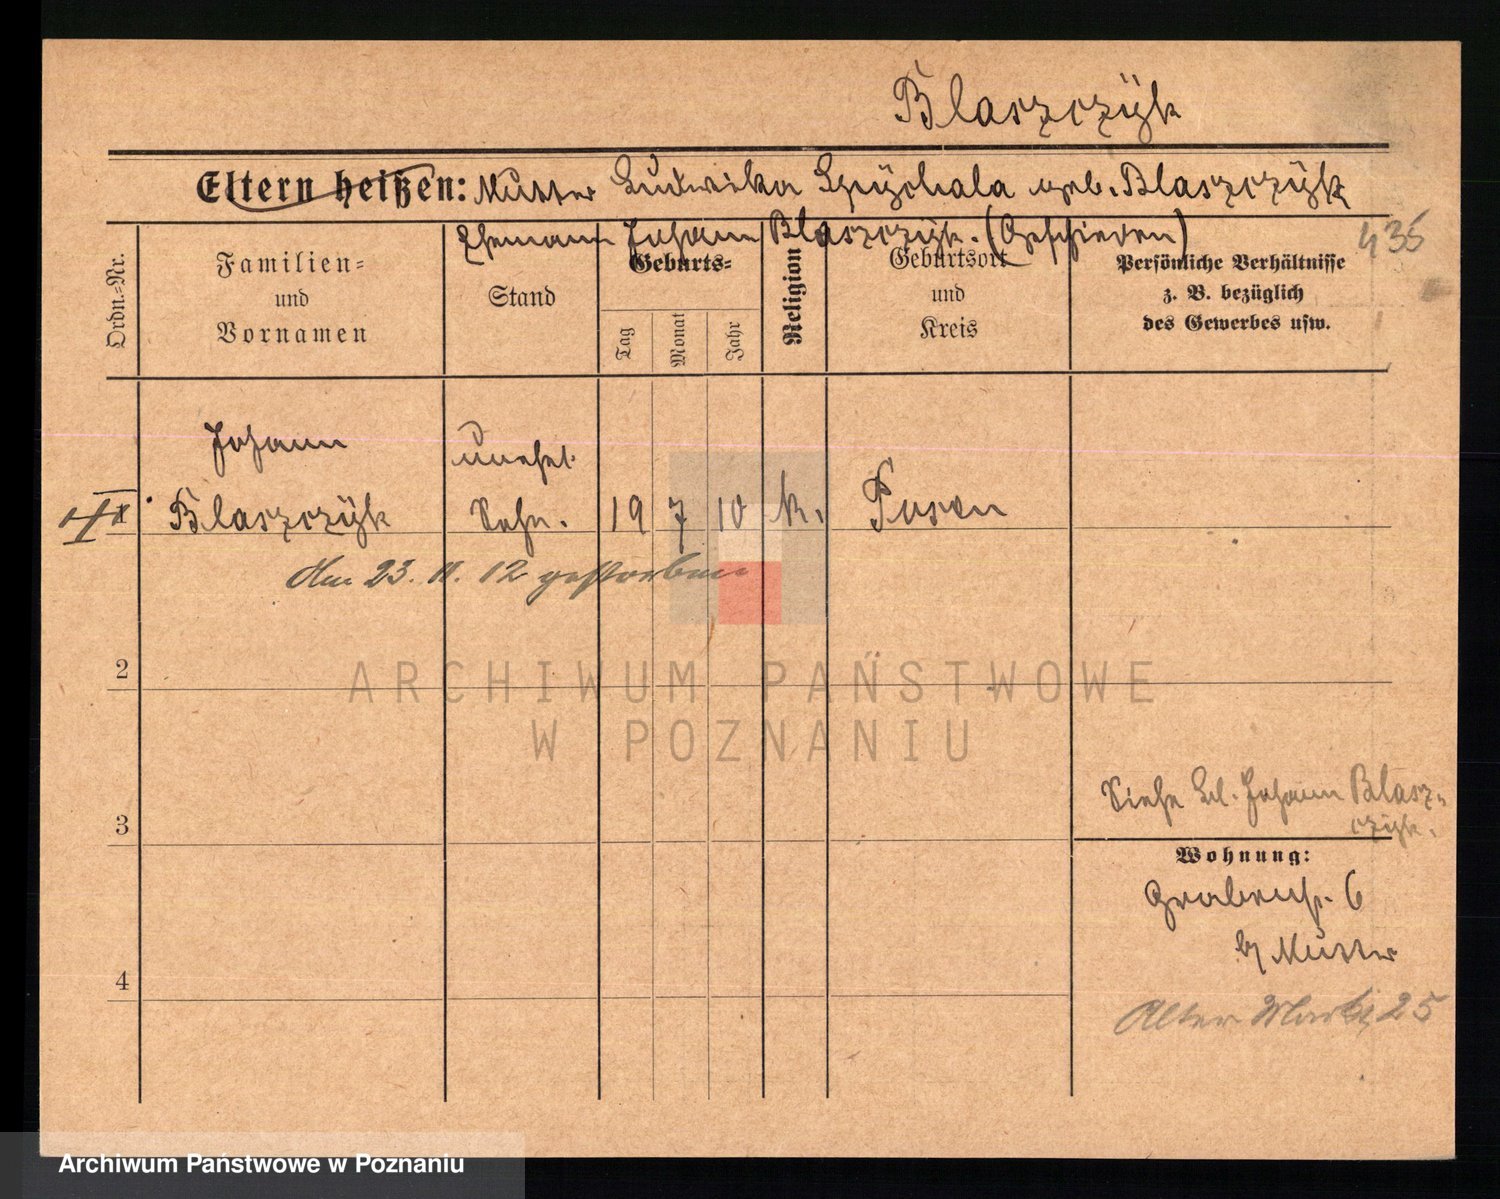 Blaszczÿk
Eltern heißen: Mutter Ludwika Spÿchala geb. Blaszczÿk
Ehemann Johann Blaszczÿk. (Geschieden)
435
Ordn.-Nr.
Familien-
und
Vornamen
Stand
Geburts-
Tag
Monat
Jahr
Religion
Geburtsort
und
Kreis
Persönliche Verhältnisse
z. B. bezüglich
des Gewerbes usw.
Johann unehel.
1 Blaszczÿk Sohn. 19 7 10 k. Posen
Am 23. 11. 12 gestorben
2
ARCHIWUM PAŃSTWOWE
W POZNANIU
3
Siehe Bl. Johann Blasz-
czÿk.
Wohnung:
Grabenst. 6
b/ Mutter
4
Alter Markt 25
Archiwum Państwowe w Poznaniu